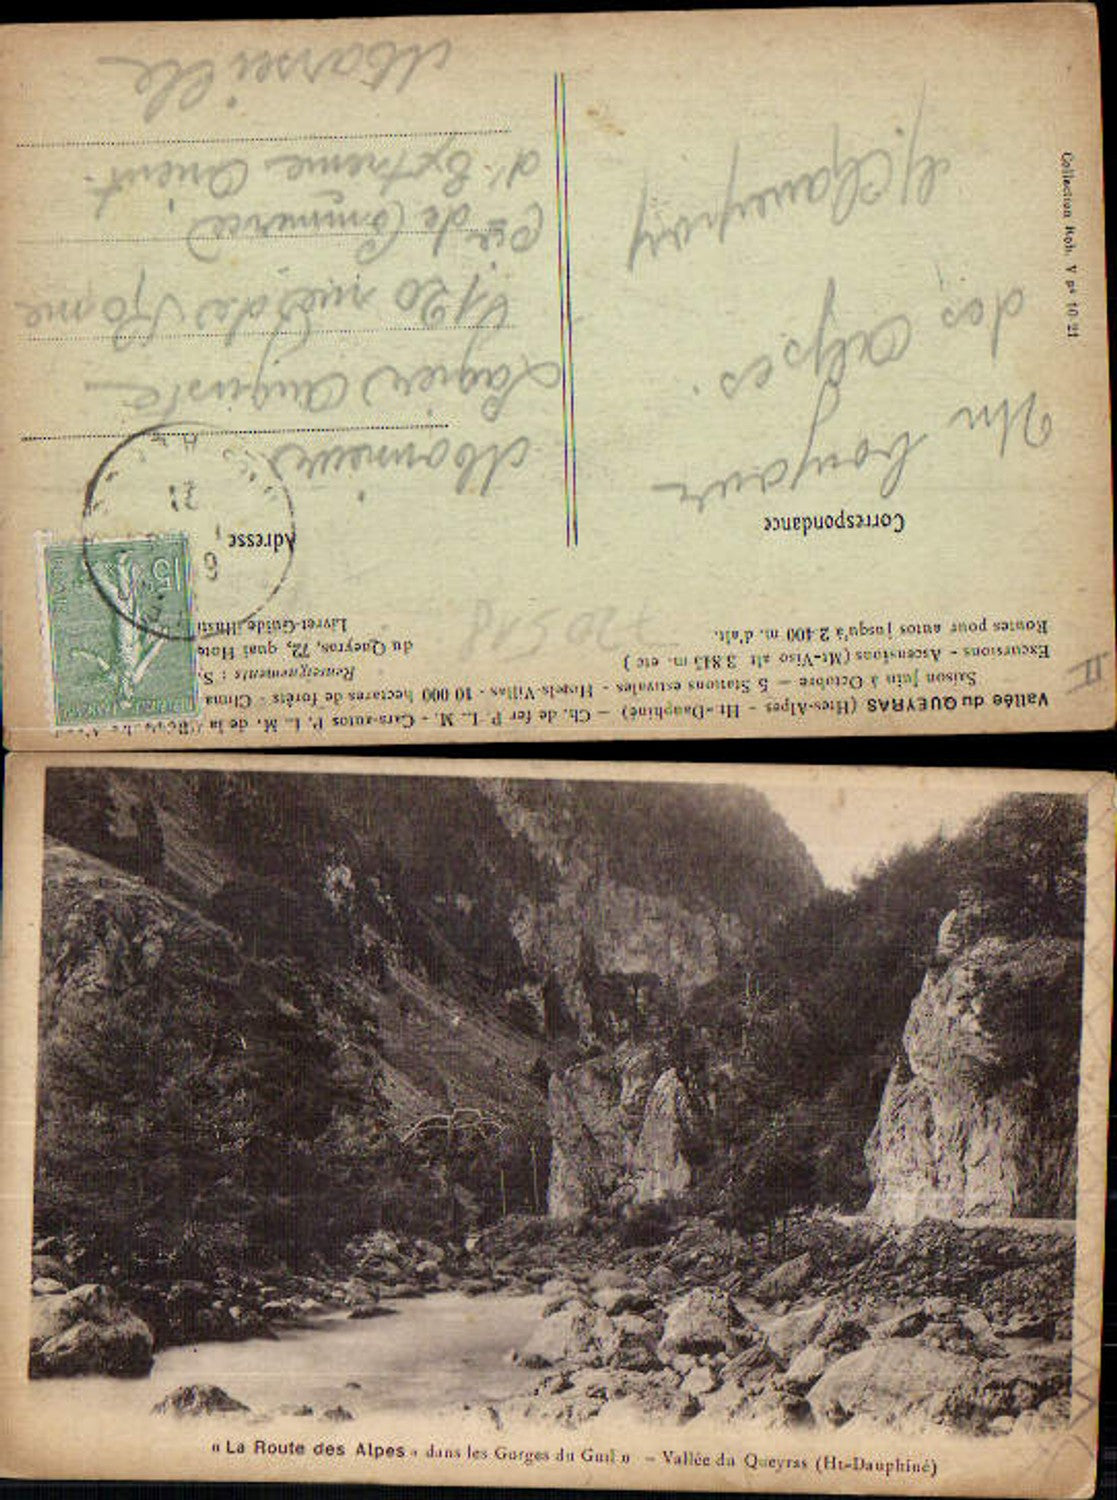 Vallée du QUEYRAS (Htes-Alpes - Ht-Dauphiné) — Ch. de fer P.-L.-M. - Cars-autos P. L. M. de la
Saison Juin à Octobre — 5 Stations estivales - Hotels-Villas - 10 000 hectares de forêts - Clima
Excursions - Ascensions (Mt-Viso alt 3.845 m. etc )
Routes pour autos jusqu'à 2 400 m. d'alt.
Renseignements : S.
du Queyras, 72, quai
Livret-Guide illust
720518
II
15
6
21
Correspondance
Adresse
Un bonjour
des Alpes.
Monsieur
Lagier Auguste
120 rue de Rome
Cie de Commerce
d'Extreme Orient.
Marseille
Collection Rob. V
10-21
« La Route des Alpes » dans les Gorges du Guil » - Vallée du Queyras (Ht-Dauphiné)